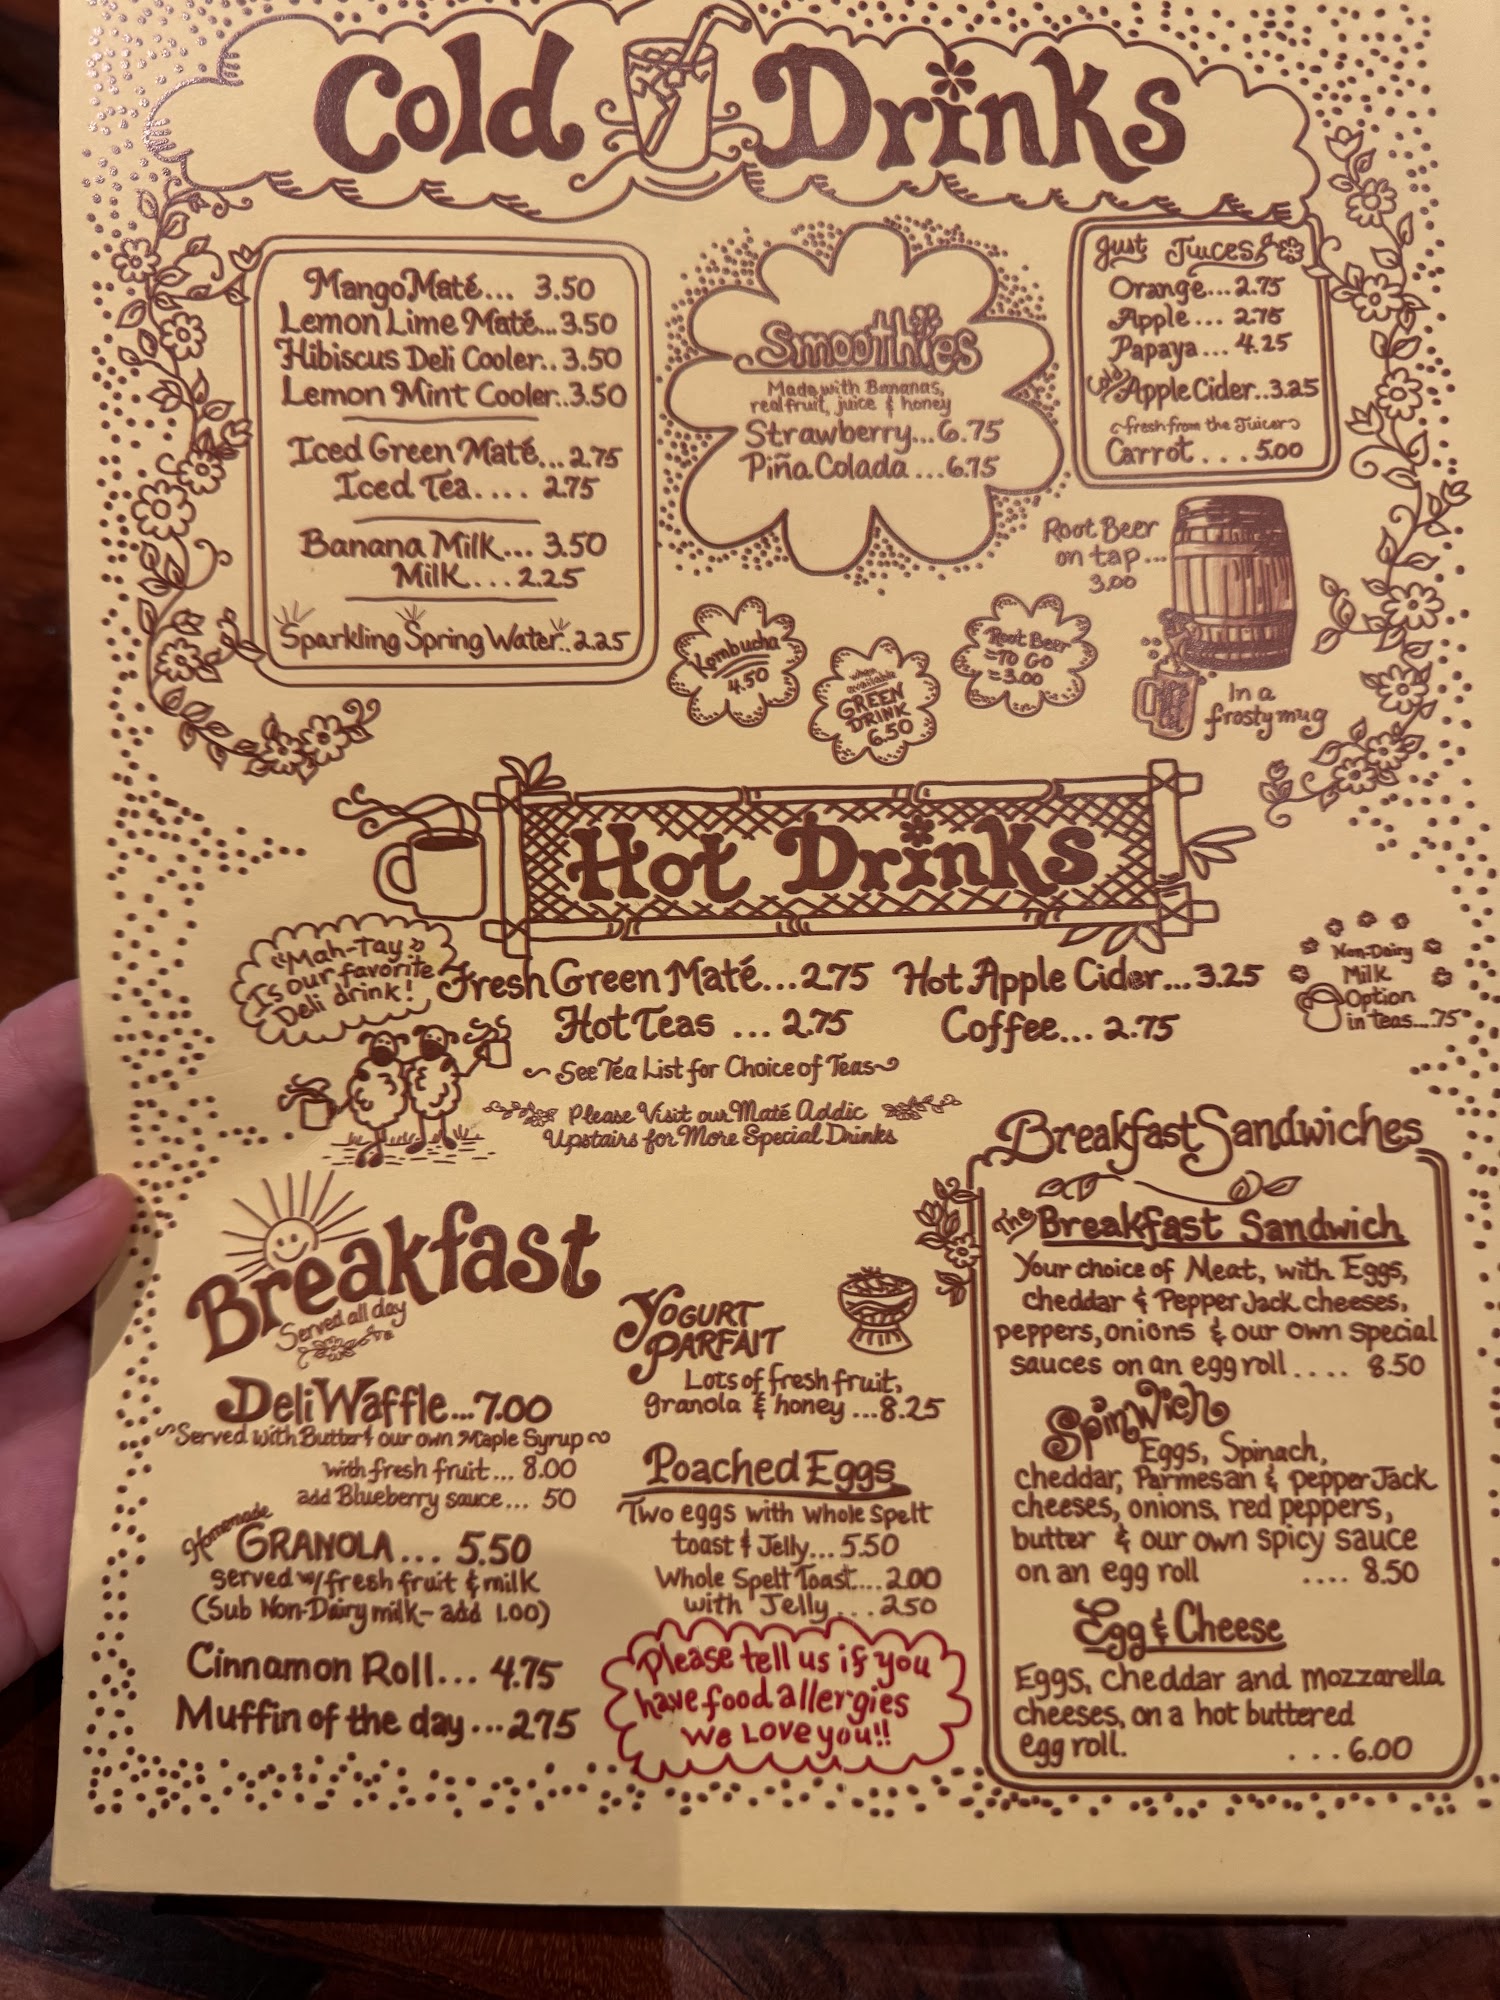 Cold Drinks
Mango Maté... 3.50
Lemon Lime Maté...3.50
Hibiscus Deli Cooler..3.50
Lemon Mint Cooler..3.50
Iced Green Maté...2.75
Iced Tea.... 2.75
Banana Milk... 3.50
Milk...2.25
Sparkling Spring Water..2.25
Smoothies
Made with Bananas,
real fruit, juice & honey
Strawberry...6.75
Piña Colada ...6.75
Just Juices
Orange...2.75
Apple... 2.75
Papaya... 4.25
Cold Apple Cider..3.25
~fresh from the Juicer~
Carrot... 5.00
Root Beer
on tap...
3.00
In a
frosty mug
Kombucha
4.50
when
available
GREEN
DRINK
6.50
Root Beer
=TO GO
=3.00
Hot Drinks
"Mah-Tay"
Is our favorite
Deli drink!
Fresh Green Maté...2.75
Hot Teas ... 2.75
Hot Apple Cider...3.25
Coffee... 2.75
~See Tea List for Choice of Teas~
Please Visit our Maté Addic
Upstairs for More Special Drinks
Non-Dairy
Milk
Option
in teas...75
Breakfast
Served all day
Deli Waffle...7.00
~Served with Butter & our own Maple Syrup~
with fresh fruit... 8.00
add Blueberry sauce... 50
Homemade
GRANOLA... 5.50
served w/fresh fruit & milk
(Sub Non-Dairy milk- add 1.00)
Cinnamon Roll... 4.75
Muffin of the day...2.75
YOGURT
PARFAIT
Lots of fresh fruit,
granola & honey ...8.25
Poached Eggs
Two eggs with whole Spelt
toast & Jelly...5.50
Whole Spelt Toast....2.00
with Jelly...2.50
Please tell us if you
have food allergies
We LOVE you!!
Breakfast Sandwiches
The Breakfast Sandwich
Your choice of Meat, with Eggs,
cheddar & Pepper Jack cheeses,
peppers, onions & our own special
sauces on an egg roll.... 8.50
SpinWich
Eggs, Spinach,
cheddar, Parmesan & pepper Jack
cheeses, onions, red peppers,
butter & our own spicy sauce
on an egg roll .... 8.50
Egg & Cheese
Eggs, cheddar and mozzarella
cheeses, on a hot buttered
egg roll. ...6.00